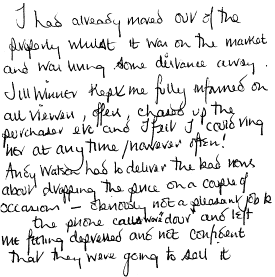 I had already moved out of the
property whilst it was on the market
and was living some distance away.
Jill Winner kept me fully informed on
all viewers, offers, chased up the
purchaser etc and I felt I could ring
her at any time / however often!
Andy Watson had to deliver the bad news
about dropping the price on a couple of
occasions – obviously not a pleasant job &
the phone calls were dour and left
me feeling depressed and not confident
that they were going to sell it